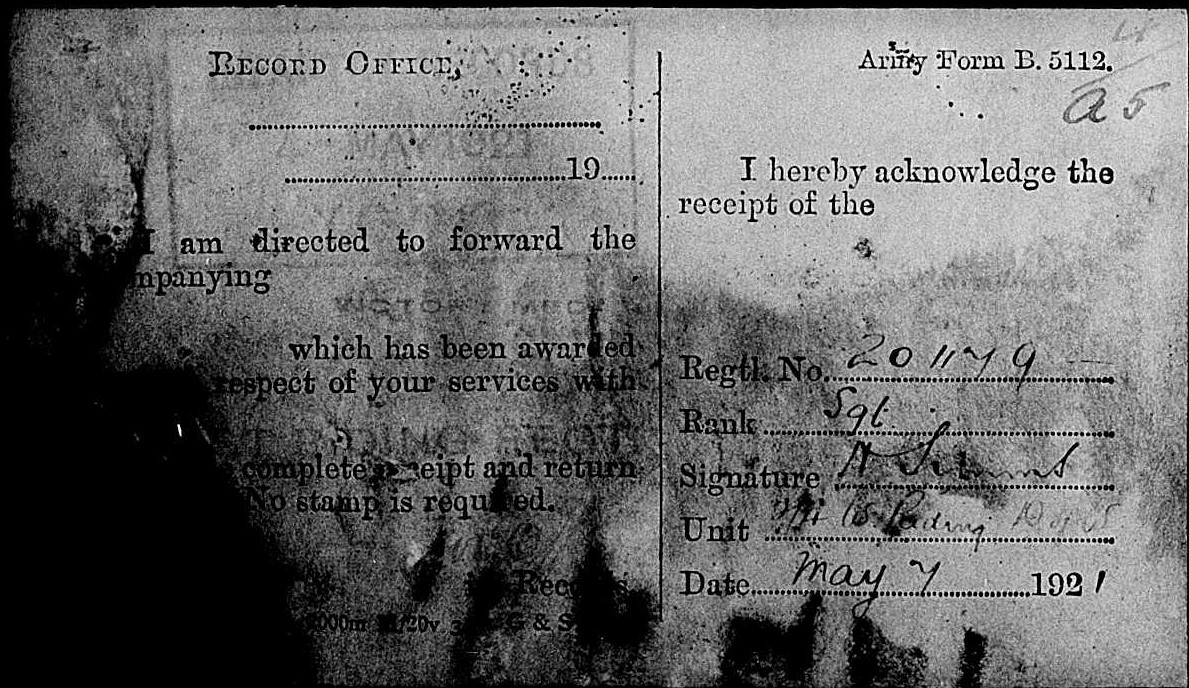 RECORD OFFICE,
19
I am directed to forward the
mpanying
which has been awarded
respect of your services with
complete receipt and return
No stamp is required.
Records.
Army Form B. 5112.
a 5
I hereby acknowledge the
receipt of the
Regtl. No. 201179
Rank Sgt.
Signature H Simms
Unit
Date May 7 1921